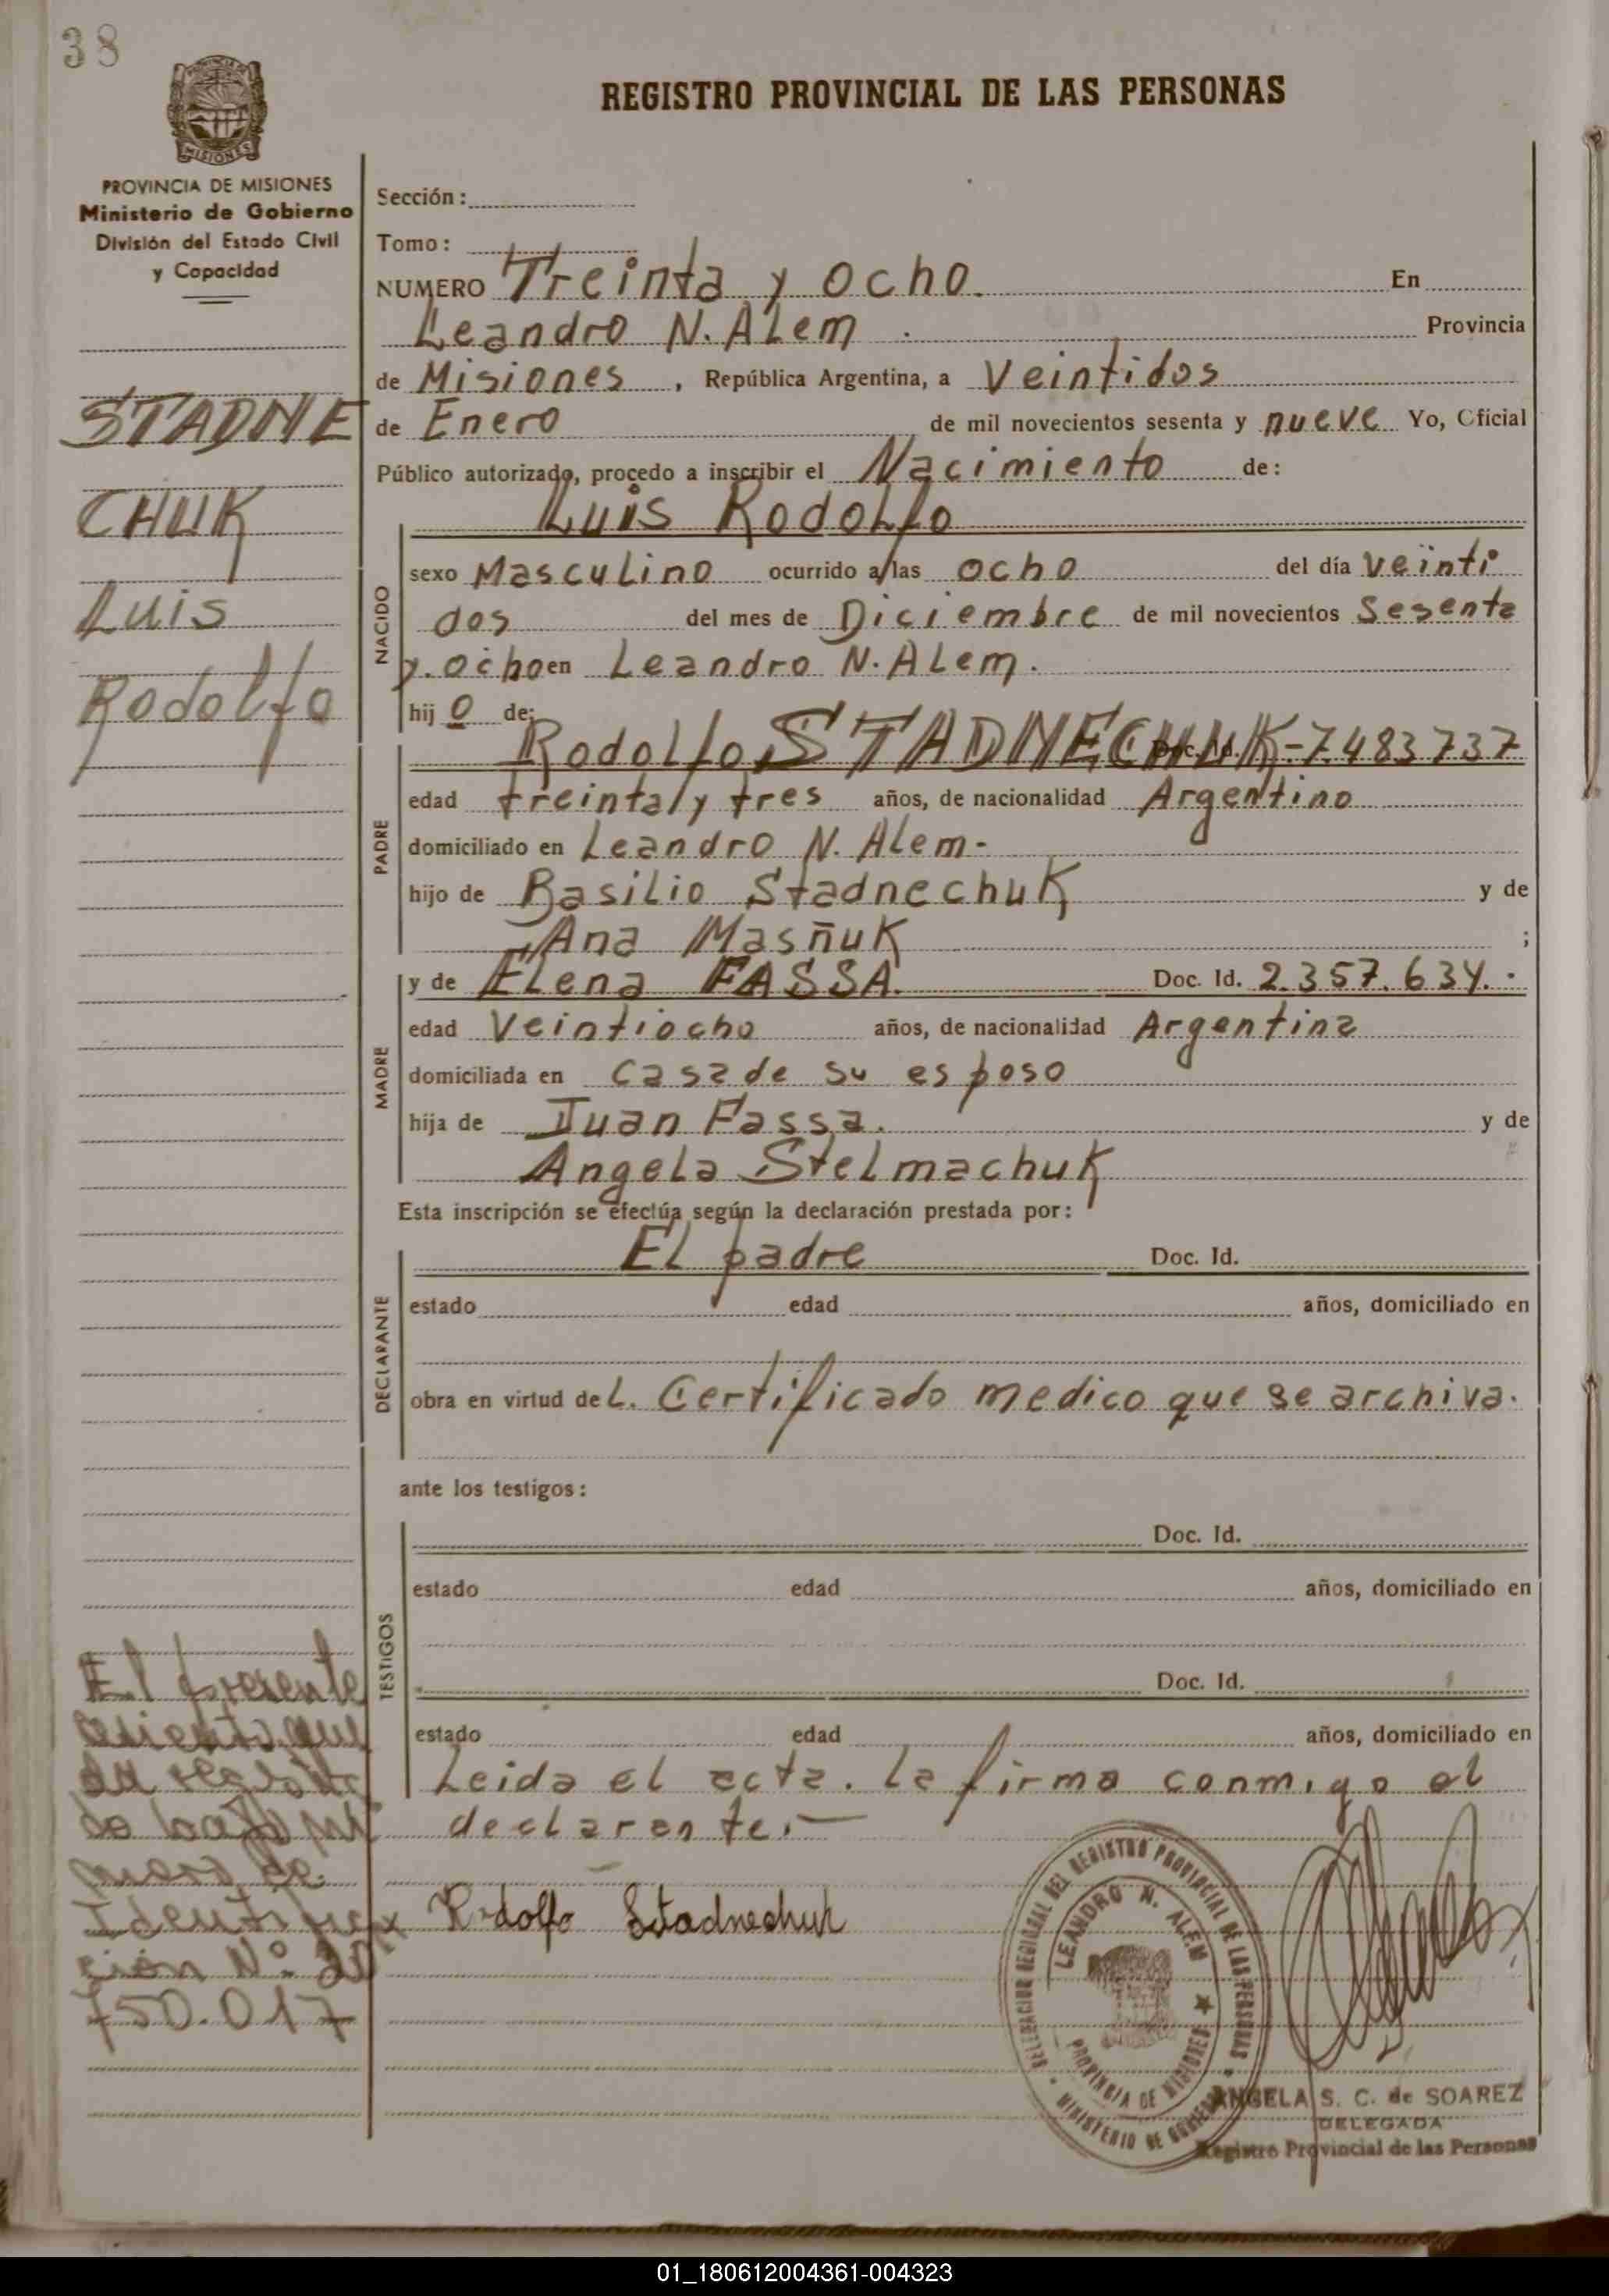 38
REGISTRO PROVINCIAL DE LAS PERSONAS
PROVINCIA DE MISIONES
Ministerio de Gobierno
División del Estado Civil
y Capacidad
STADNE
CHUK
Luis
Rodolfo
Sección:
Tomo:
NUMERO Treinta y ocho. En
Leandro N. ALem. Provincia
de Misiones, República Argentina, a Veintidos
de Enero de mil novecientos sesenta y nueve Yo, Oficial
Público autorizado, procedo a inscribir el Nacimiento de:
Luis Rodolfo
NACIDO
sexo Masculino ocurrido a las ocho del día Veinti
dos del mes de Diciembre de mil novecientos Sesenta
y ocho en Leandro N. ALem.
hij o de:
PADRE
Rodolfo STADNECHUK - 7.483737
edad treinta y tres años, de nacionalidad Argentino
domiciliado en Leandro N. Alem-
hijo de Basilio Stadnechuk y de
Ana Masñuk ;
MADRE
y de ELena FASSA. Doc. Id. 2.357.634.
edad Veintiocho años, de nacionalidad Argentina
domiciliada en Casa de su esposo
hija de Juan Fassa. y de
Angela Stelmachuk
Esta inscripción se efectúa según la declaración prestada por:
DECLARANTE
El padre Doc. Id.
estado edad años, domiciliado en
obra en virtud de L. Certificado medico que se archiva.
ante los testigos:
TESTIGOS
Doc. Id.
estado edad años, domiciliado en
Doc. Id.
estado edad años, domiciliado en
Leida el acta. La firma conmigo el
declarante.-
Rodolfo Stadnechuk
El presente
asiento que
da registra
do bajo nú
mero de
Identifica
ción Nº 20
750.017
DELEGACION REGIONAL DEL REGISTRO PROVINCIAL DE LAS PERSONAS
LEANDRO N. ALEM
PROVINCIA DE MISIONES
MINISTERIO DE GOBIERNO
ANGELA S. C. de SOAREZ
DELEGADA
Registro Provincial de las Personas
01_180612004361-004323